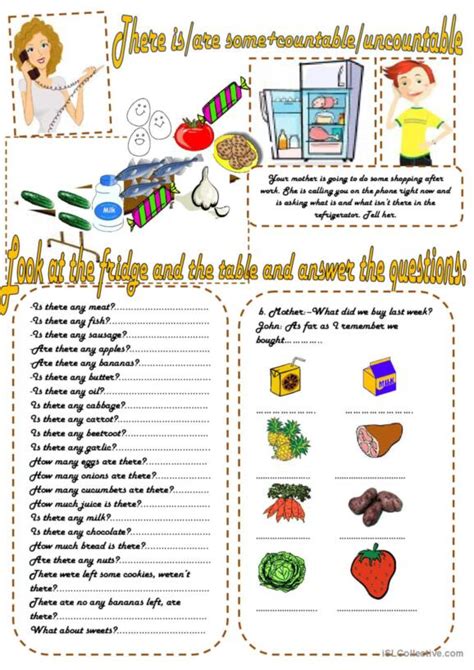 There is/are some+countable/uncountable
Milk
Your mother is going to do some shopping after
work. She is calling you on the phone right now and
is asking what is and what isn't there in the
refrigerator. Tell her.
Look at the fridge and the table and answer the questions:
-Is there any meat?........................
-Is there any fish?........................
-Is there any sausage?........................
Are there any apples?........................
Are there any bananas?........................
-Is there any butter?........................
-Is there any oil?........................
-Is there any cabbage?........................
-Is there any carrot?........................
-Is there any beetroot?........................
-Is there any garlic?........................
How many eggs are there?........................
How many onions are there?........................
How many cucumbers are there?........................
How much juice is there?........................
-Is there any milk?........................
-Is there any chocolate?........................
How much bread is there?........................
Are there any nuts?........................
There were left some cookies, weren't
there?........................
There are no any bananas left, are
there?........................
What about sweets?........................
b. Mother:-What did we buy last week?
John: As far as I remember we
bought............
MILK
iSLCollective.com